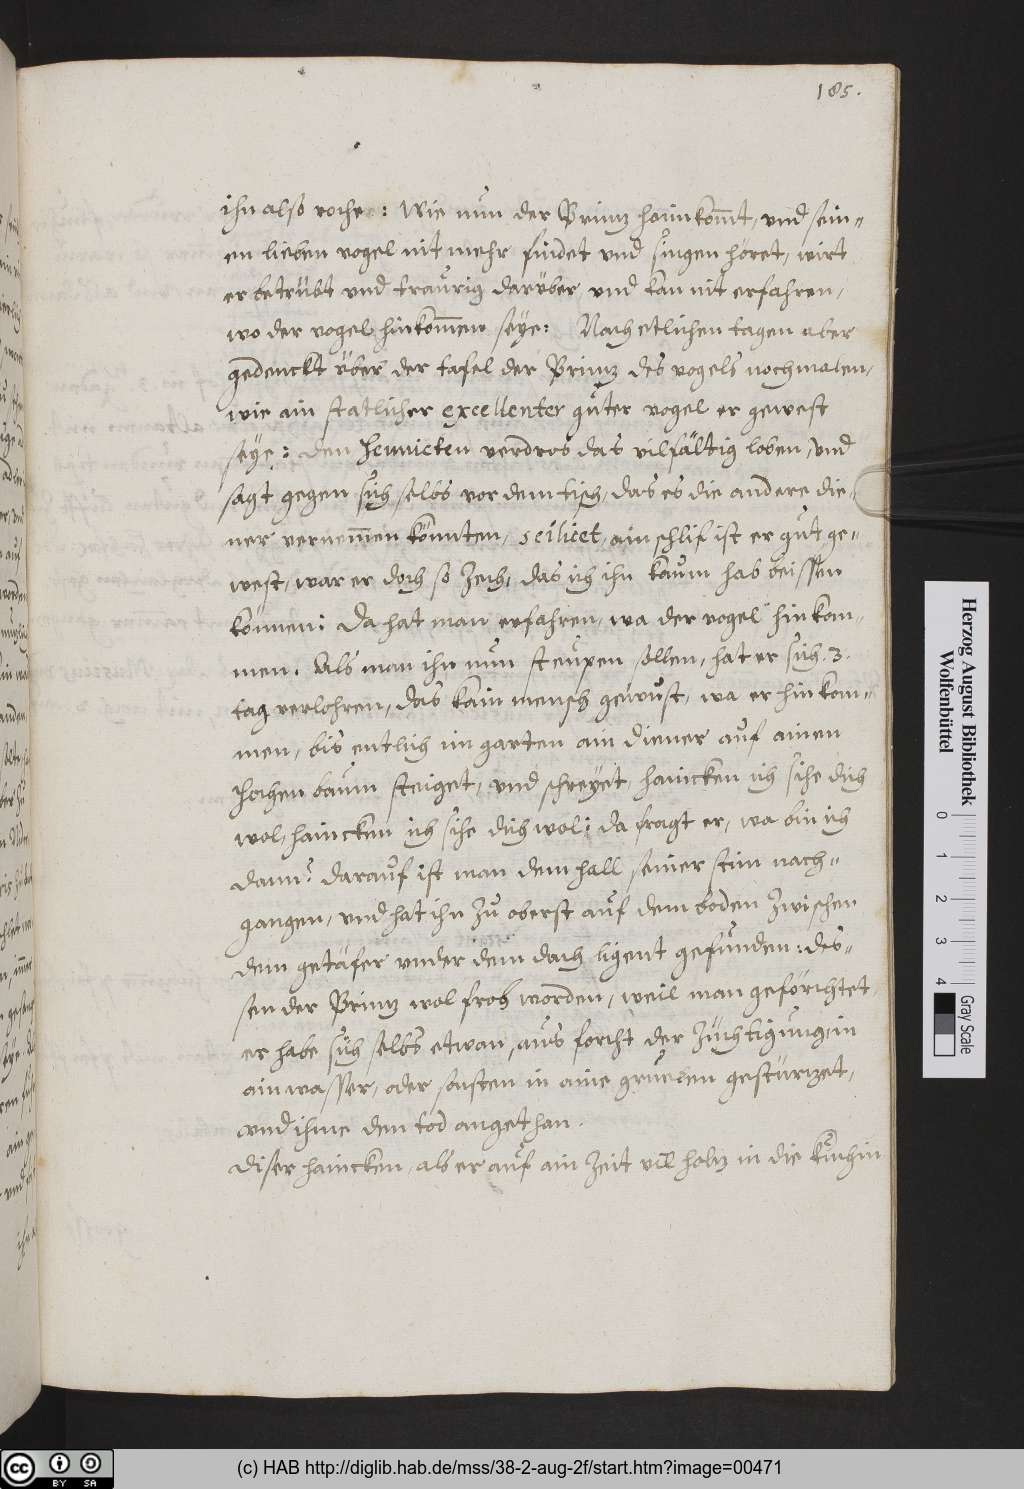 185.
ihn also roche: Wie nun der Prinz haimkom̄t, vnd sein-
en lieben vogel nit mehr findet vnd singen höret, wirt
er betrübt vnd traurig darüber, vnd kan nit erfahren,
wo der vogel hinkom̄en seye: Nach etlichen tagen aber
gedenckt über der tafel der Prinz des vogels nochmalen,
wie ain statlicher excellenter guter vogel er gewest
seye: den Hennicken verdros das vilfältig loben, vnd
sagt gegen sich selbs vor dem tisch, das es die andere die-
ner vernem̄en könnten, scilicet, ain schlif ist er gut ge-
west, war er doch so zech, das ich ihn kaum hab beissen
können: Da hat man erfahren, wa der vogel hinkom-
men. Als man ihn nun steupen sollen, hat er sich .3.
tag verlohren, das kain mensch gewust, wa er hinkom-
men, bis entlich im garten ain diener auf ainen
hochen baum steiget, vnd schreyet, hainicken ich sihe dich
wol, haincken ich sihe dich wol: da fragt er, wa bin ich
dann? darauf ist man dem hall seiner stim nach-
gangen, vnd hat ihn zu oberst auf dem boden zwischen
dem getäfer vnder dem dach ligent gefunden: des-
sen der Prinz wol froh worden, weil man geförchtet,
er habe sich selbs etwan, aus forcht der züchtigung, in
ain wasser, oder sonsten in aine grueben gestürzet,
vnd ihme den tod angethan.
Diser haincken, als er auf ain zeit vill holz in die kuchin
Herzog August Bibliothek
Wolfenbüttel
0 1 2 3 4
Gray Scale
cc BY SA
(c) HAB http://diglib.hab.de/mss/38-2-aug-2f/start.htm?image=00471